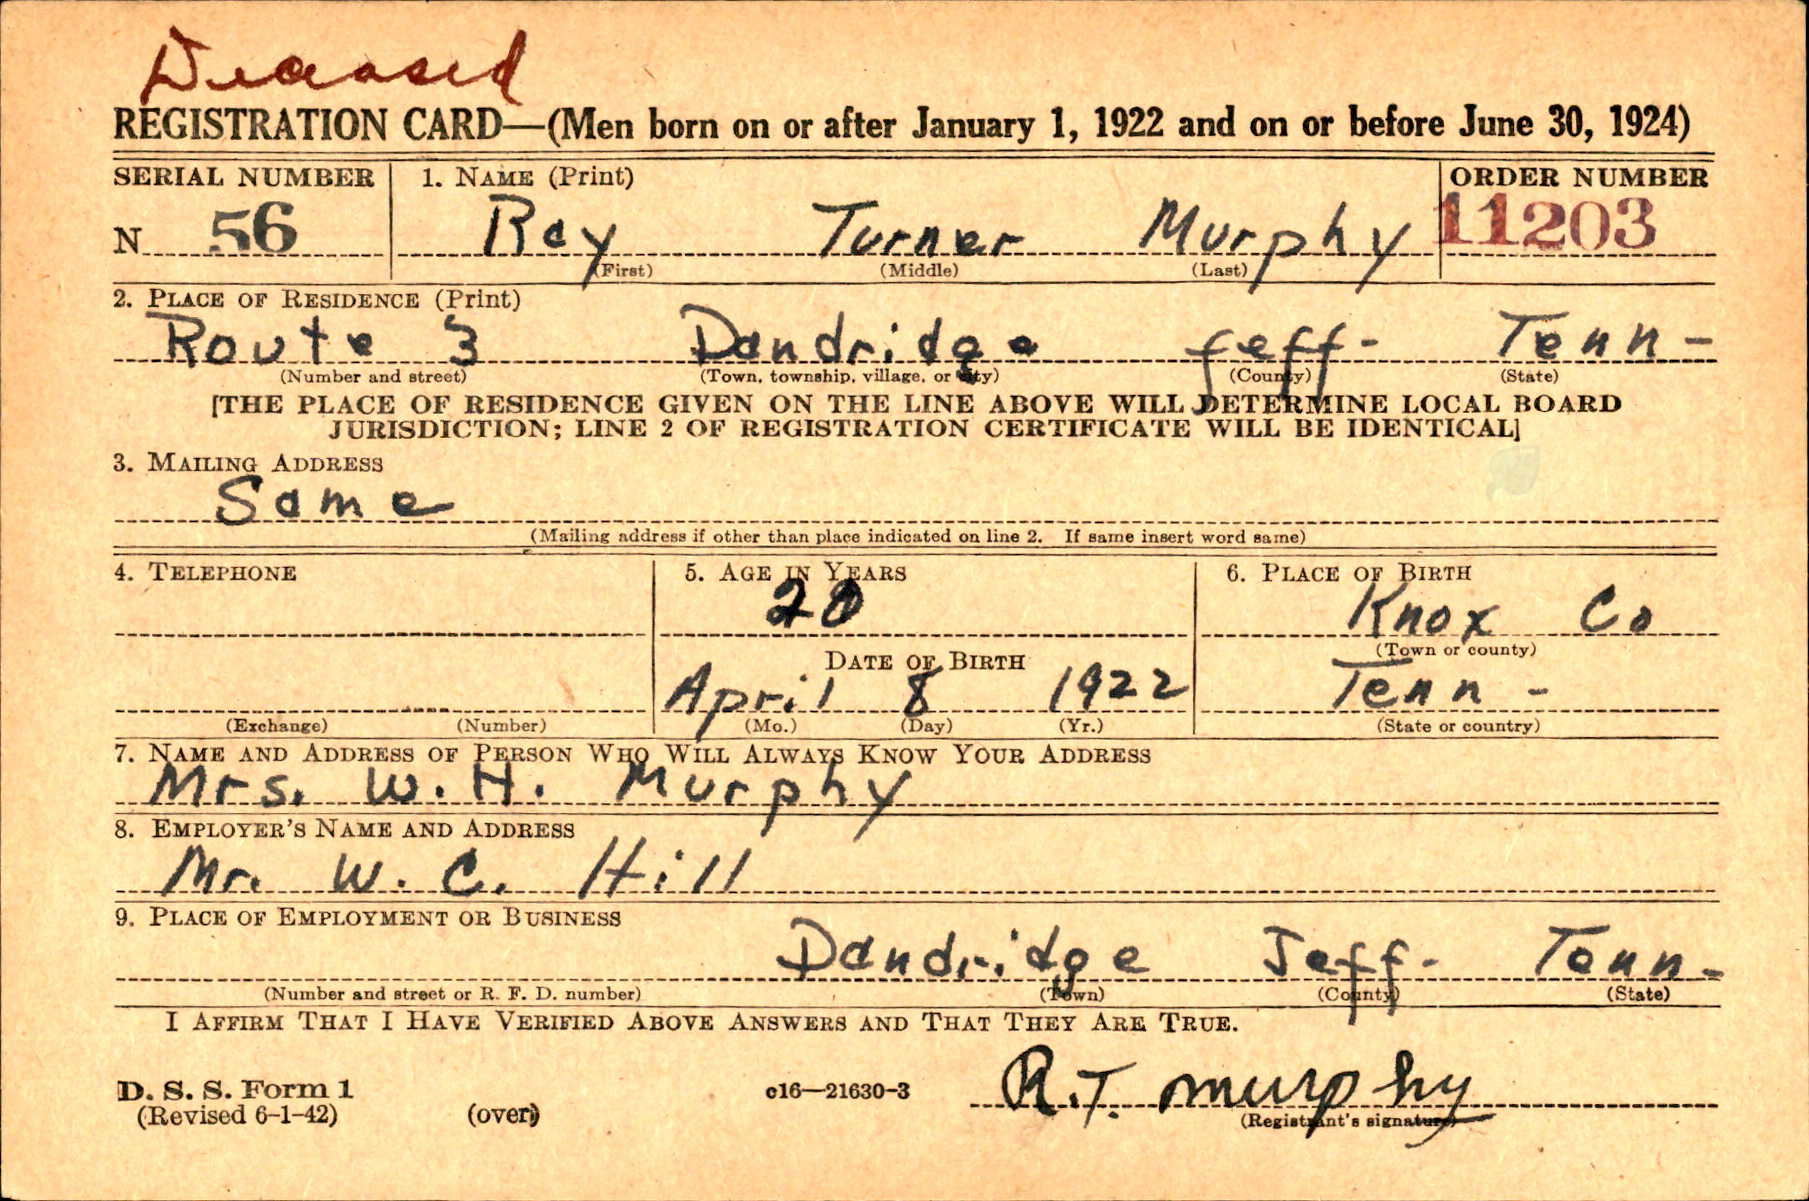 Deceased
REGISTRATION CARD—(Men born on or after January 1, 1922 and on or before June 30, 1924)
SERIAL NUMBER 1. NAME (Print) ORDER NUMBER
N 56 Ray Turner Murphy 11203
(First) (Middle) (Last)
2. PLACE OF RESIDENCE (Print)
Route 3 Dandridge Jeff- Tenn-
(Number and street) (Town, township, village, or city) (County) (State)
[THE PLACE OF RESIDENCE GIVEN ON THE LINE ABOVE WILL DETERMINE LOCAL BOARD
JURISDICTION; LINE 2 OF REGISTRATION CERTIFICATE WILL BE IDENTICAL]
3. MAILING ADDRESS
Same
(Mailing address if other than place indicated on line 2. If same insert word same)
4. TELEPHONE 5. AGE IN YEARS 6. PLACE OF BIRTH
20 Knox Co
(Town or county)
DATE OF BIRTH
April 8 1922 Tenn-
(Exchange) (Number) (Mo.) (Day) (Yr.) (State or country)
7. NAME AND ADDRESS OF PERSON WHO WILL ALWAYS KNOW YOUR ADDRESS
Mrs. W. H. Murphy
8. EMPLOYER'S NAME AND ADDRESS
Mr. W. C. Hill
9. PLACE OF EMPLOYMENT OR BUSINESS
Dandridge Jeff- Tenn-
(Number and street or R. F. D. number) (Town) (County) (State)
I AFFIRM THAT I HAVE VERIFIED ABOVE ANSWERS AND THAT THEY ARE TRUE.
R.T. Murphy
D. S. S. Form 1 c16—21630-3
(Revised 6-1-42) (over) (Registrant's signature)